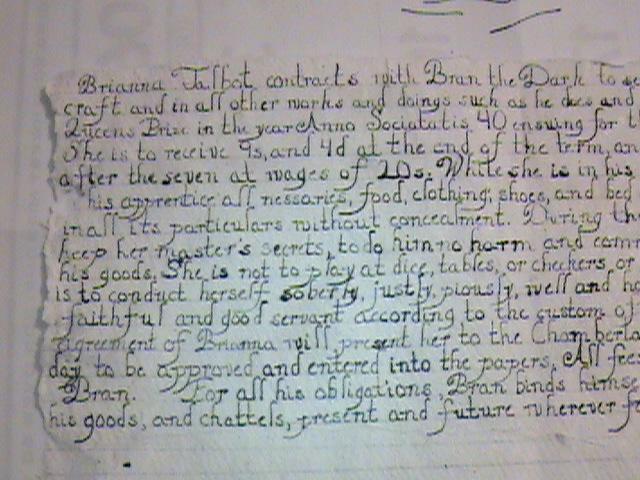 Brianna Talbot contracts with Bran the Dark to se
craft and in all other works and doings such as he does and
Queens Prize in the year Anno Sociatatis 40 ensuing for t
She is to receive 9s, and 4d at the end of the term, an
after the seven at wages of 20s. While she is in his
his apprentice all nessaries, food, clothing, shoes, and bed
in all its particulars without concealment. During th
keep her master's secrets, to do him no harm and comm
his goods. She is not to play at dice, tables, or checkers, or
is to conduct herself soberly, justly, piously, well and ho
faithful and good servant according to the custom of
agreement of Brianna will present her to the Chamberla
day to be approved and entered into the papers. All fees
Bran. For all his obligations, Bran binds himse
his goods, and chattels, present and future wherever fo